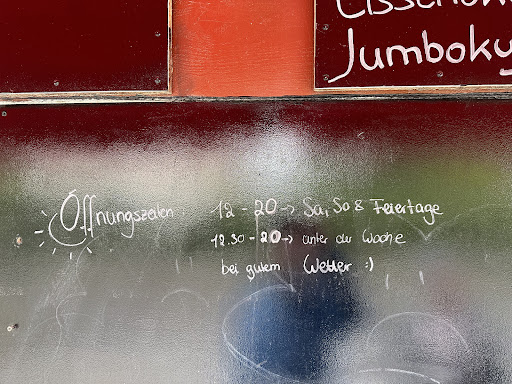 Jumboky
Öffnungszeiten 12 - 20 → Sa, So & Feiertage
12.30 - 20 → unter der Woche
bei gutem Wetter :)